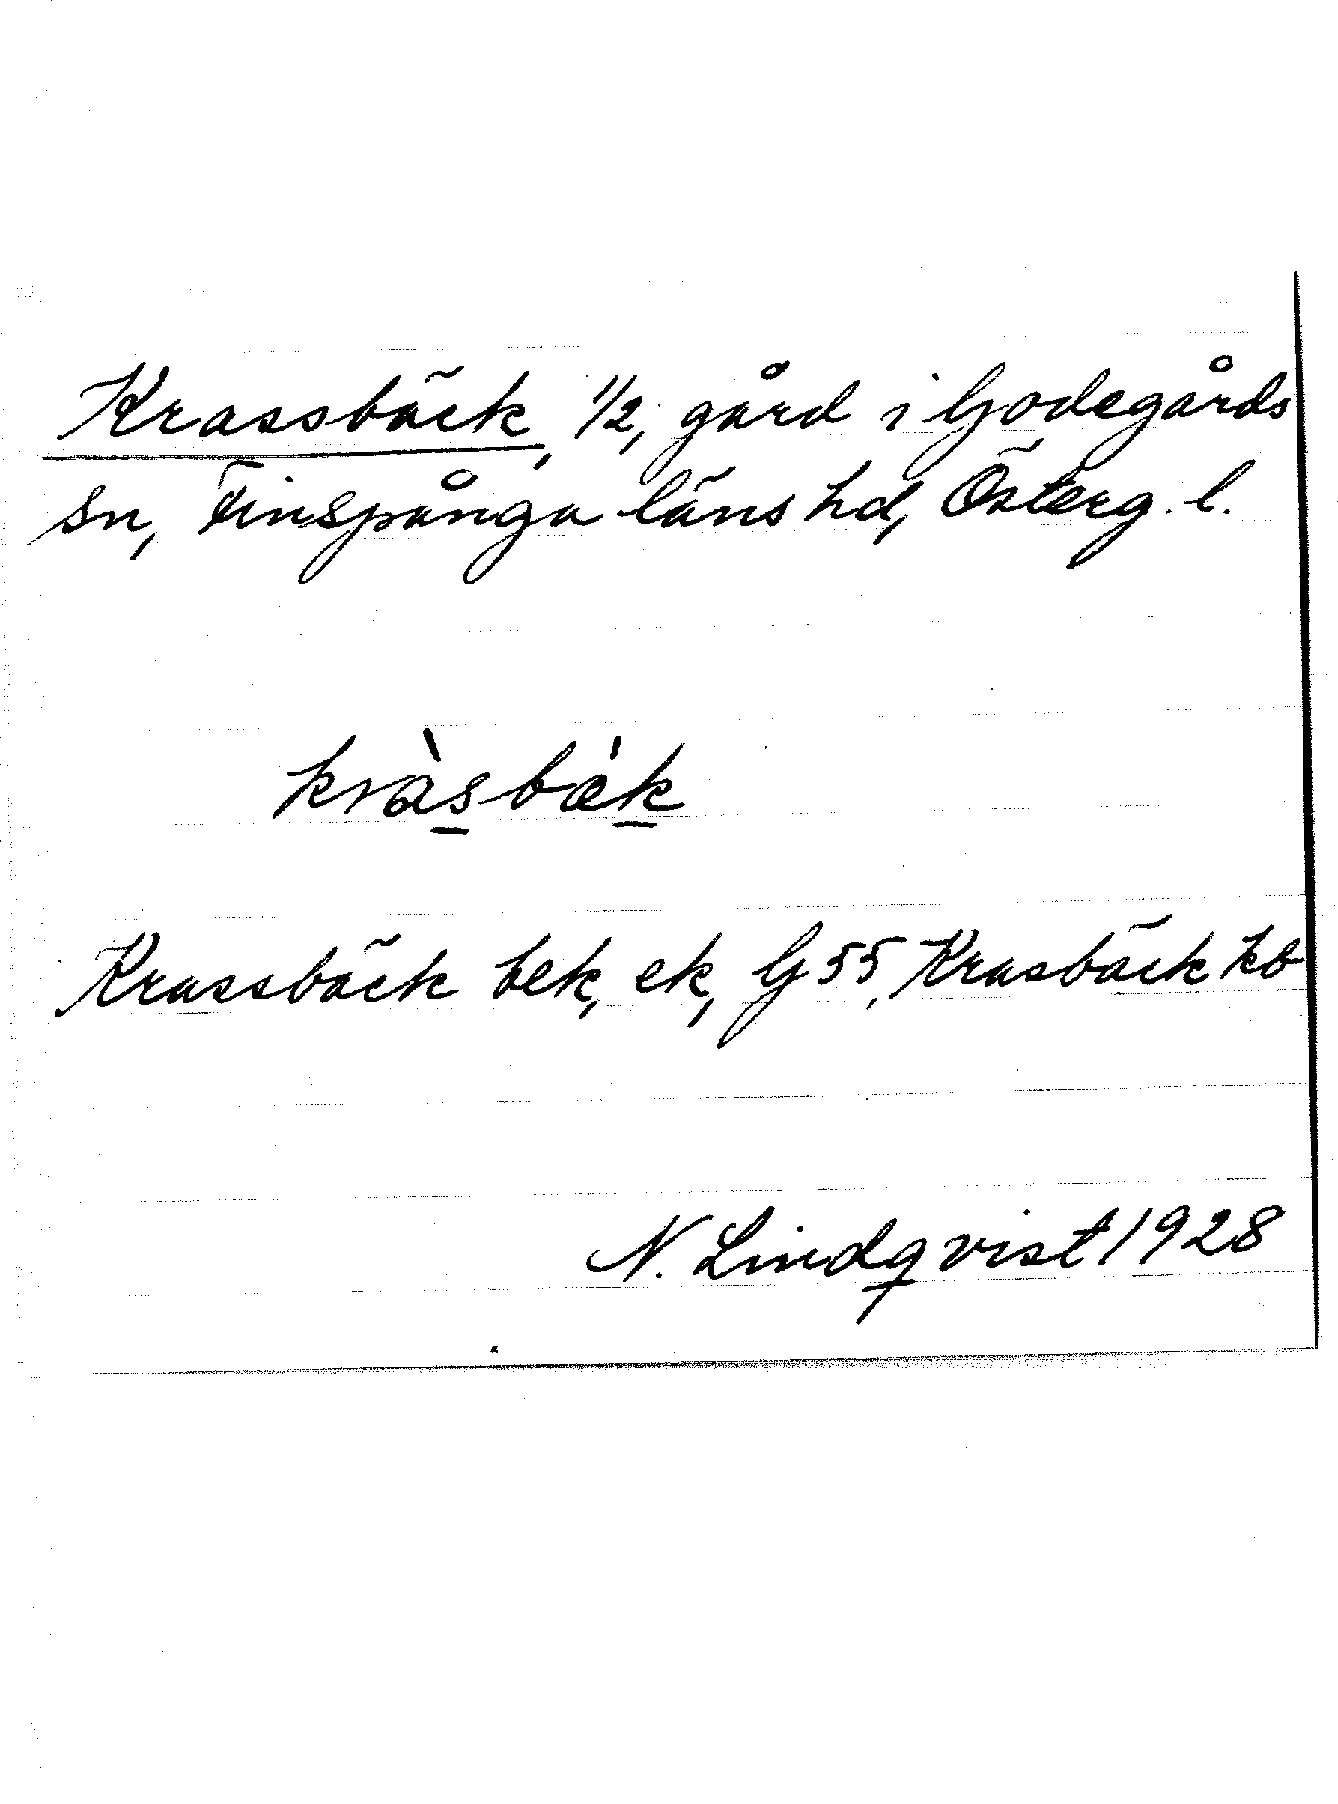 Krassbäck, 1/2, gård i Godegårds
sn, Finspånga läns hd, Österg. l.
kràsbǽk
Krassbäck bek, ek, G 55, Krasbäck kb
N. Lindqvist 1928